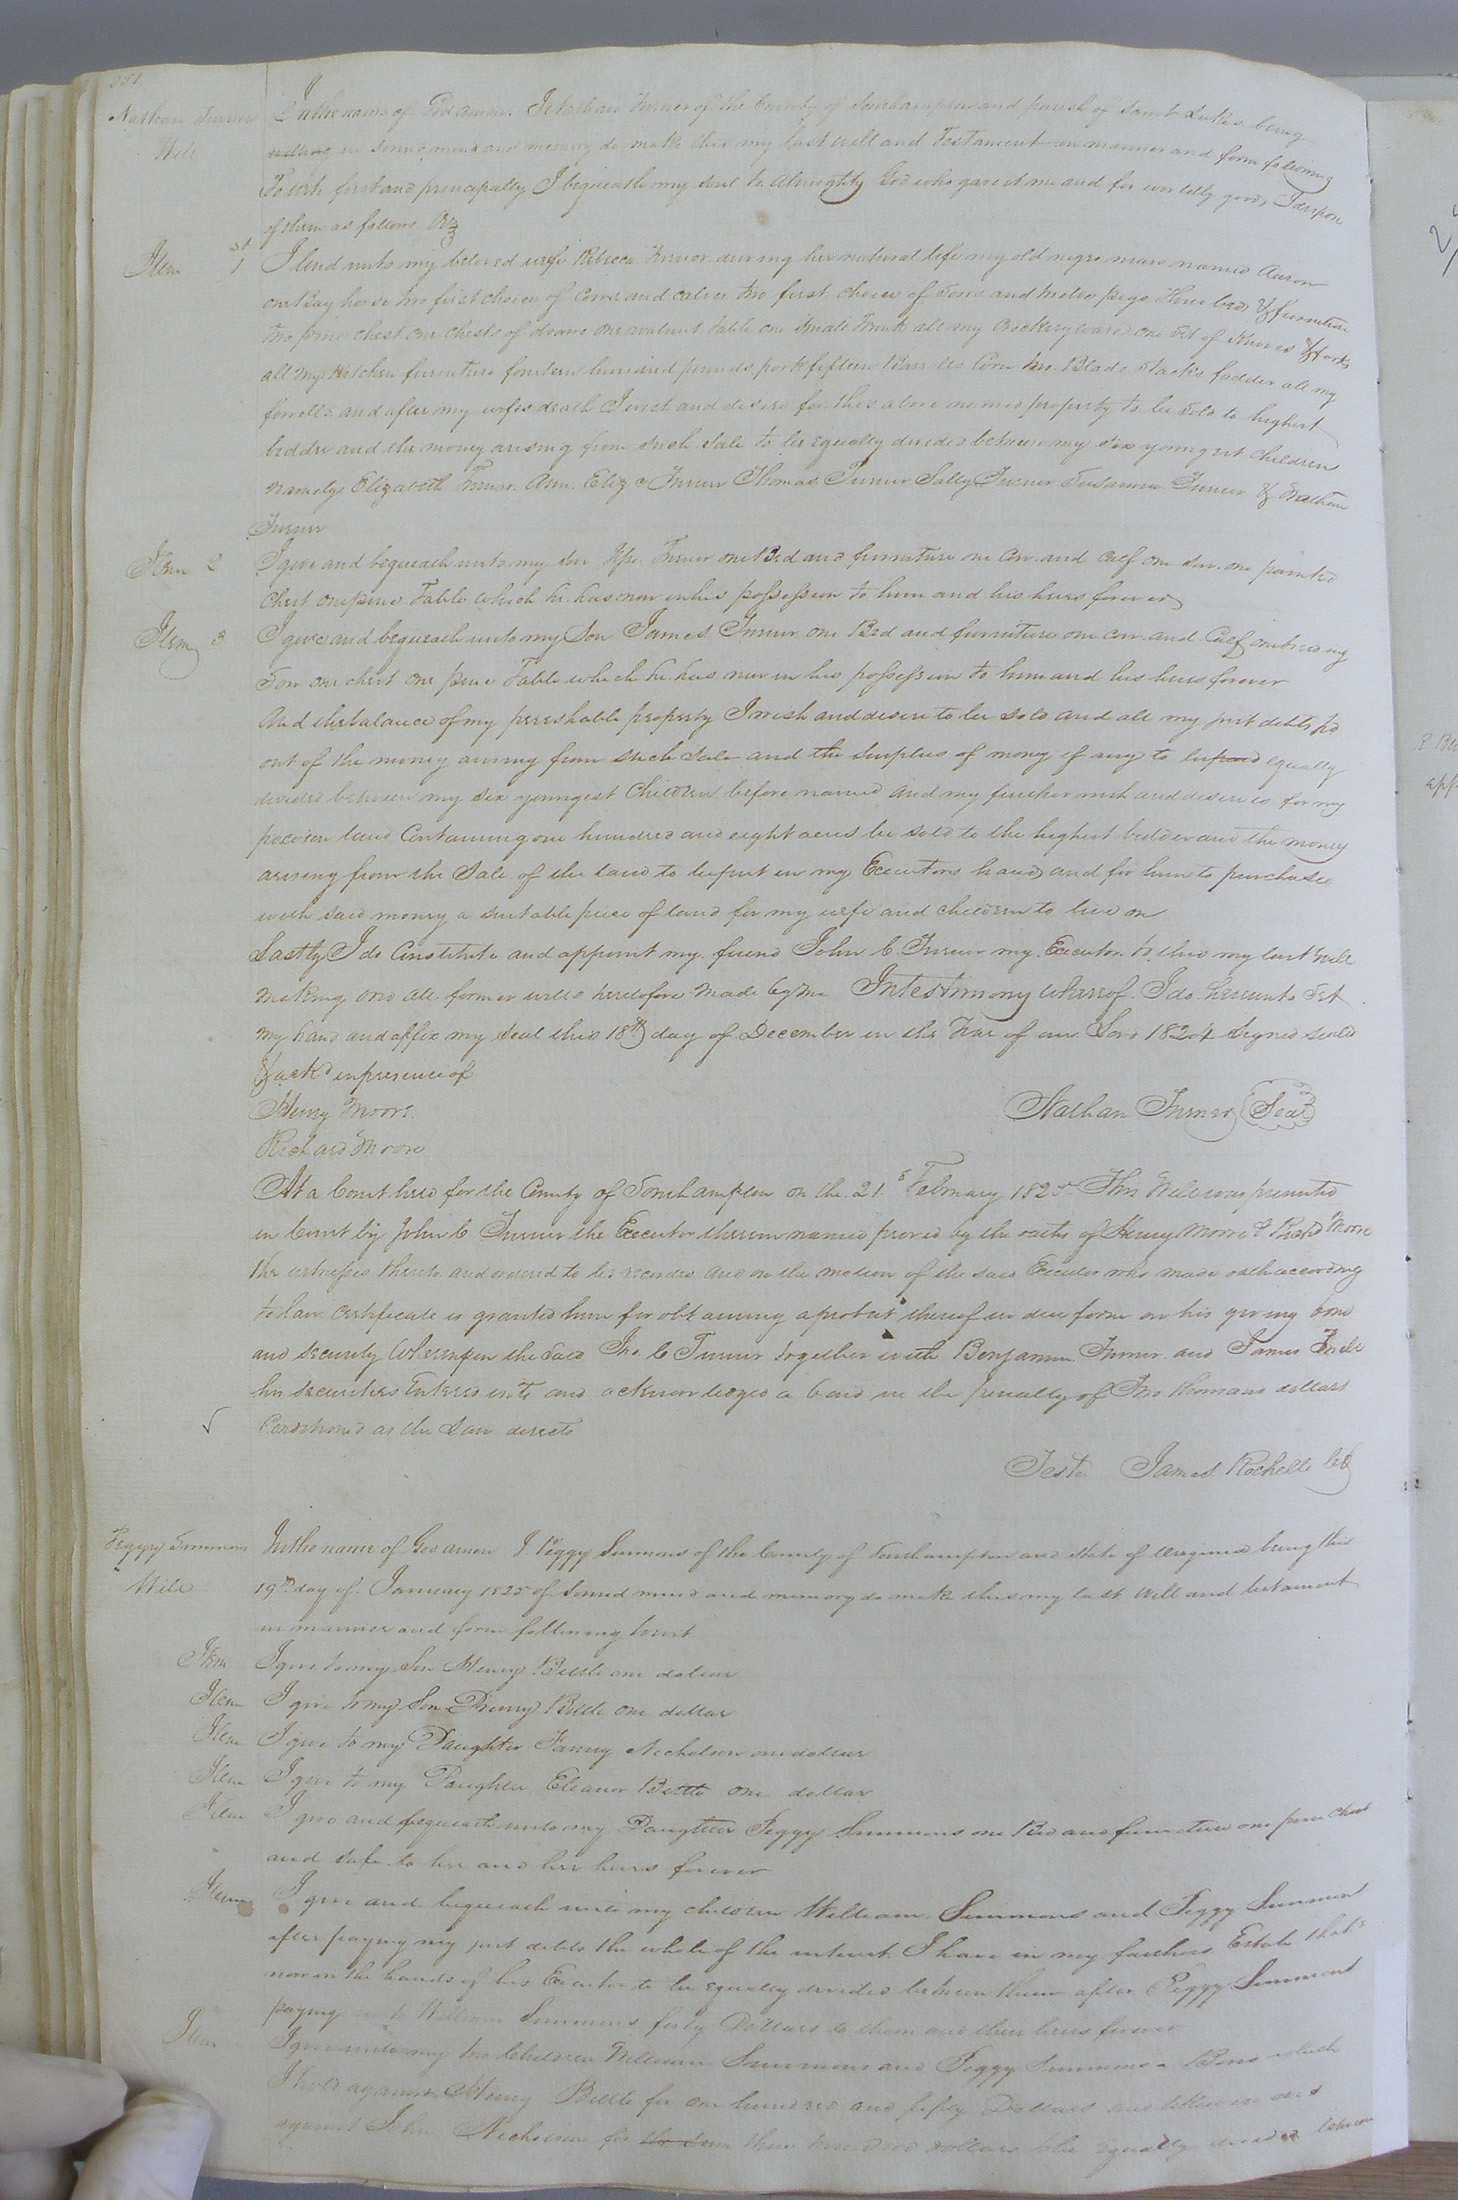 351
Nathan Turner Will
In the name of God amen. I Nathan Turner of the County of Southampton and parish of Saint Luke's being
in sound mind and memory do make this my last will and Testament in manner and form following
To wit, first and principally I bequeath my soul to Almighty God who gave it me and for worldly goods I dispose
of them as follows Viz
Item 1st I lend unto my beloved wife Rebecca Turner during her natural life my old negro man named Aaron
one Bay horse two first choice of Cows and calves two first choice of Sows and twelve pigs three beds & furniture
two pine chest one chests of draws one walnut table one small trunk all my Crockery ware one set of Knives & forks
all my Kitchen furniture fourteen hundred pounds pork fifteen Barrels Corn two Blade stacks fodder all my
fowells and after my wifes death I wish and desire for this above named property to be sold to highest
bidder and the money arising from such sale to be equally divided between my six youngest children
namely Elizabeth Turner Ann Eliza Turner Thomas Turner Sally Turner Susanna Turner & Nathan
Turner
Item 2 I give and bequeath unto my son Turner one Bed and furniture one Cow and Calf one Sow one painted
Chest one pine Table which he has now in his possession to him and his heirs forever
Item 3 I give and bequeath unto my Son James Turner one Bed and furniture one Cow and Calf one breeding
Sow one chest one pine Table which he has now in his possession to him and his heirs forever
And the balance of my perishable property I wish and desire to be sold and all my just debts pd
out of the money arising from such sale and the surplus of money if any to be paid equally
divided between my six youngest Children before named and my further wish and desire is for my
land Containing one hundred and eight acres be sold to the highest bidder and the money
arising from the Sale of the land to be put in my Executors hands and for him to purchase
with said money a suitable piece of land for my wife and children to live on
Lastly I do Constitute and appoint my friend John C Turner my Executor to this my last will
making void all former wills heretofore made by me In testimony whereof I do hereunto set
my hand and affix my seal this 18th day of December in the Year of our Lord 1824 Signed seald
& ackd in presence of
Henry Moore
Nathan Turner Seal
Richard Moore
At a Court held for the County of Southampton on the 21s February 1825 This Will was presented
in Court by John C Turner the Executor therein named proved by the oaths of Henry Moore & Richd Moore
the witnesses thereto and ordered to be recorded and on the motion of the said Executor who made oath according
to law Certificate is granted him for obtaining a probat thereof in due form on his giving bond
and security Whereupon the said Jno. C Turner together with Benjamin Turner and James
his securities Entered into and acknowledged a bond in the penalty of Two thousand dollars
Conditioned as the Law directs
Teste James Rochelle CC
Peggy Simmons Will
In the name of God amen I Peggy Simmons of the County of Southampton and state of Virginia being this
19th day of January 1825 of sound mind and memory do make this my last will and testament
in manner and form following to wit
Item I give to my Son Henry Bittle one dollar
Item I give to my Son Drury Bittle one dollar
Item I give to my Daughter Fanny Nicholson one dollar
Item I give to my Daughter Eleanor Bittle one dollar
Item I give and bequeath unto my Daughter Peggy Simmons one Bed and furniture one pine chest
and safe to her and her heirs forever
Item I give and bequeath unto my children William Simmons and Peggy Simmons
after paying my just debts the whole of the interest I have in my fathers Estate that's
now in the hands of his Executor to be equally divided between them after Peggy Simmons
paying William Simmons forty Dollars to them and their heirs forever
Item I give unto my two Children William Simmons and Peggy Simmons a Bond which
I hold against Henry Bittle for one hundred and fifty Dollars and likewise
against John Nicholson for the sum three hundred dollars to be equally divided between